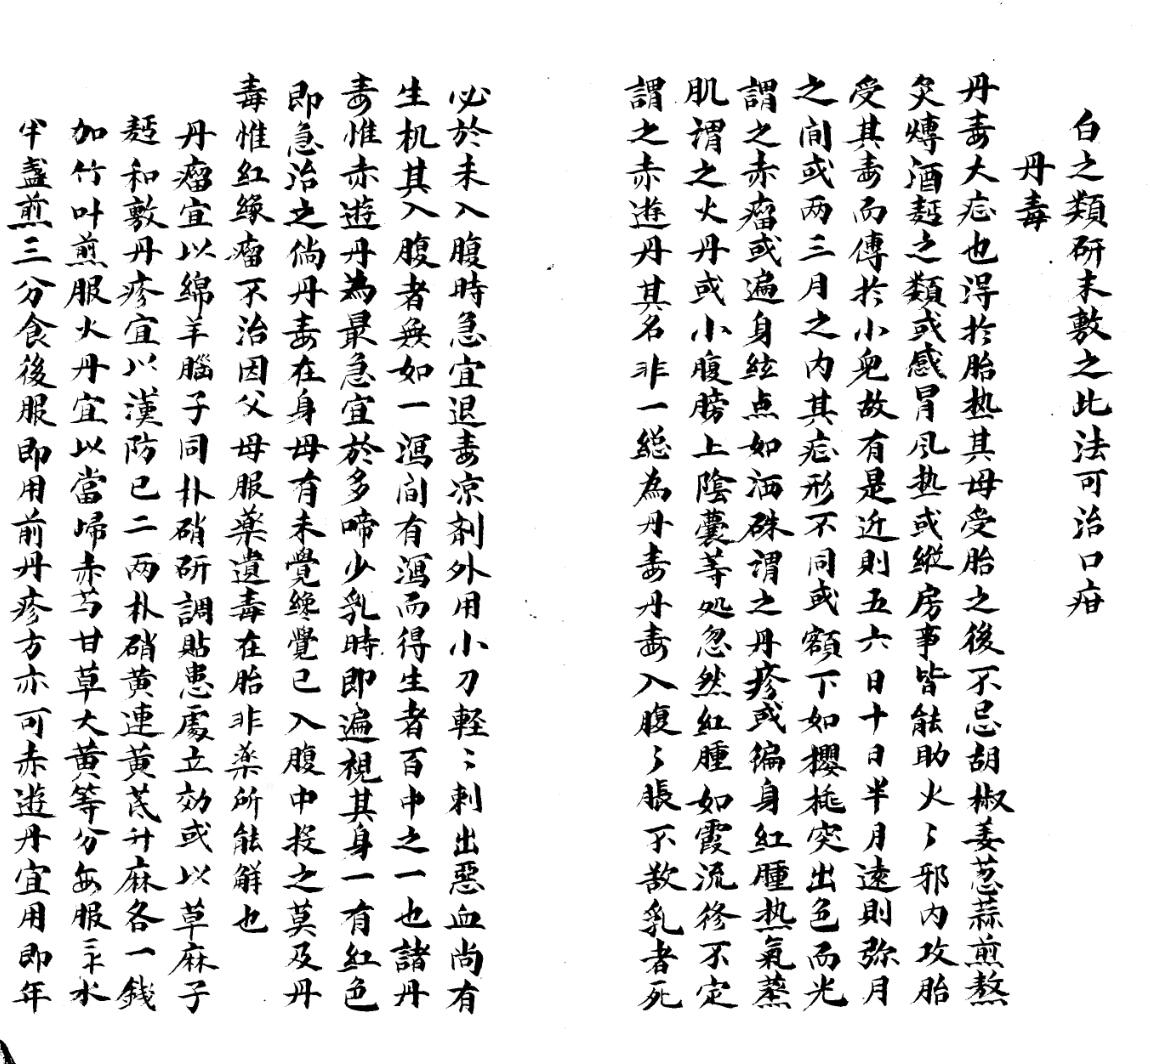 白之類研末敷之此法可治口疳
丹毒
丹毒大症也淂於胎热其母受胎之後不忌胡椒姜葱蒜煎熬
炙煿酒麪之類或感冒风热或縱房事皆能助火〻邪内攻胎
受其毒而傳於小兒故有是近則五六日十日半月遠則弥月
之间或两三月之内其症形不同或額下如攖桃突出色而光
謂之赤瘤或遍身絃点如洒硃謂之丹疹或徧身红腫热氣蒸
肌谓之火丹或小腹膀上陰囊等处忽然红腫如霞流移不定
謂之赤遊丹其名非一総為丹毒丹毒入腹〻脹不敢乳者死
必於未入腹時急宜退毒凉剂外用小刀軽〻刺出惡血尚有
生机其入腹者無如一瀉间有瀉而得生者百中之一也諸丹
毒惟赤遊丹為最急宜於多啼少乳時即遍視其身一有红色
即急治之倘丹毒在身母有未覺纔覺已入腹中投之莫及丹
毒惟红緣瘤不治因父母服薬遺毒在胎非薬所能解也
丹瘤宜以綿羊腦子同朴硝研調貼患處立効或以草麻子
麪和敷丹疹宜以漢防已二两朴硝黄連黄芪升麻各一銭
加竹叶煎服火丹宜以當帰赤芍甘草大黄等分每服三钱水
半盞煎三分食後服即用前丹疹方亦可赤遊丹宜用即年